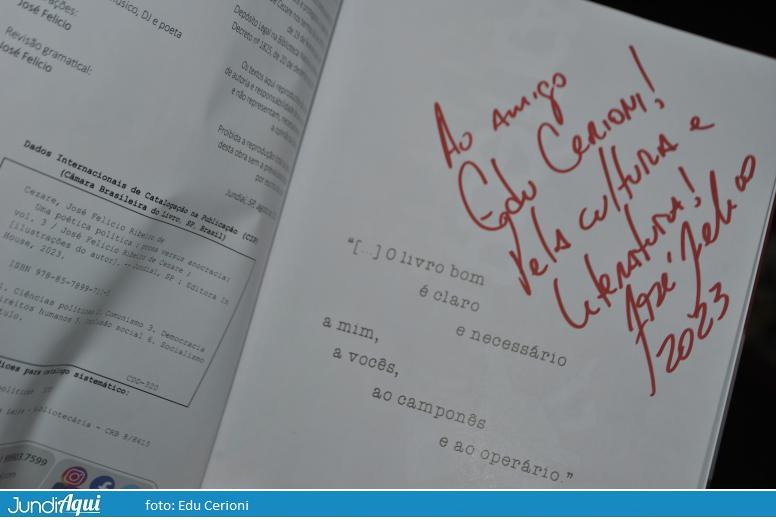 José Felicio
músico, DJ e poeta
Revisão gramatical:
José Felicio
Depósito Legal na Biblioteca
Decreto nº 1825, de 20 de
Os textos aqui
de autoria e responsabilidade
e não representam,
Proibida a reprodução
desta obra sem a
Jundiaí, SP,
Dados Internacionais de Catalogação na Publicação (CIP)
(Câmara Brasileira do Livro, SP, Brasil)
Cezare, José Felicio Ribeiro de
Uma poética política : prosa versus anocracia:
vol. 3 / José Felicio Ribeiro de Cezare ;
[ilustrações do autor]. -- Jundiaí, SP : Editora In
House, 2023.
ISBN 978-85-7899-
1. Ciências políticas 2. Comunismo 3. Democracia
humanos 5. Inclusão social 6. Socialismo
CDD-320
para catálogo sistemático:
Bibliotecária - CRB 8/8415
7599
"[...] O livro bom
é claro
e necessário
a mim,
a vocês,
ao camponês
e ao operário."
Ao amigo
Edu Cerioni!
Pela cultura e
literatura!
José Felicio
2023
JundiAqui
foto: Edu Cerioni